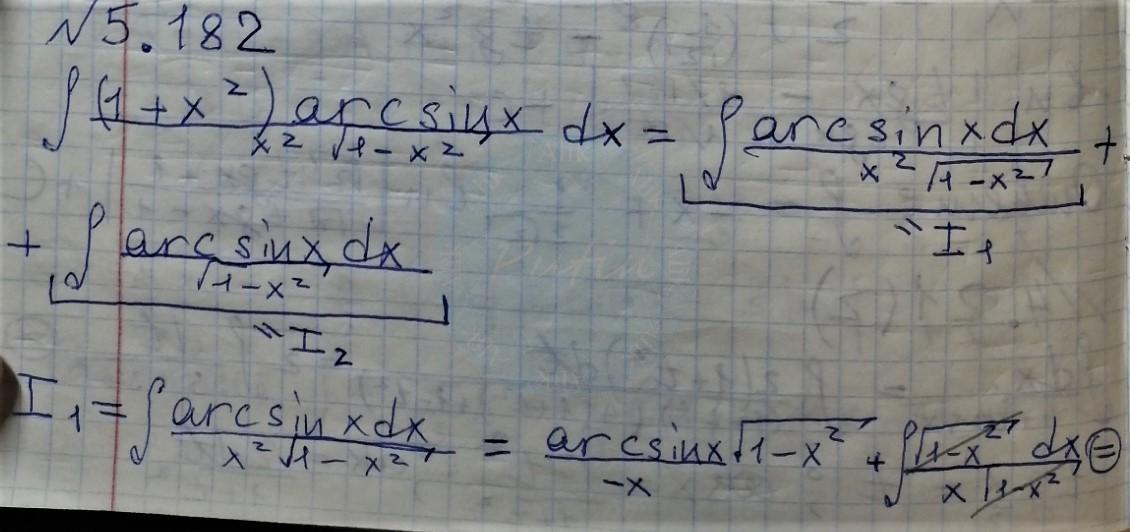 №5.182
∫ (1+x²) arcsinx / x² √(1-x²) dx = ∫ arcsinxdx / x² √(1-x²) +
+ ∫ arcsinx dx / √(1-x²)
= I₁
= I₂
I₁ = ∫ arcsinxdx / x² √(1-x²) = arcsinx √(1-x²) / -x + ∫ √(1-x²) dx / x √(1-x²) =